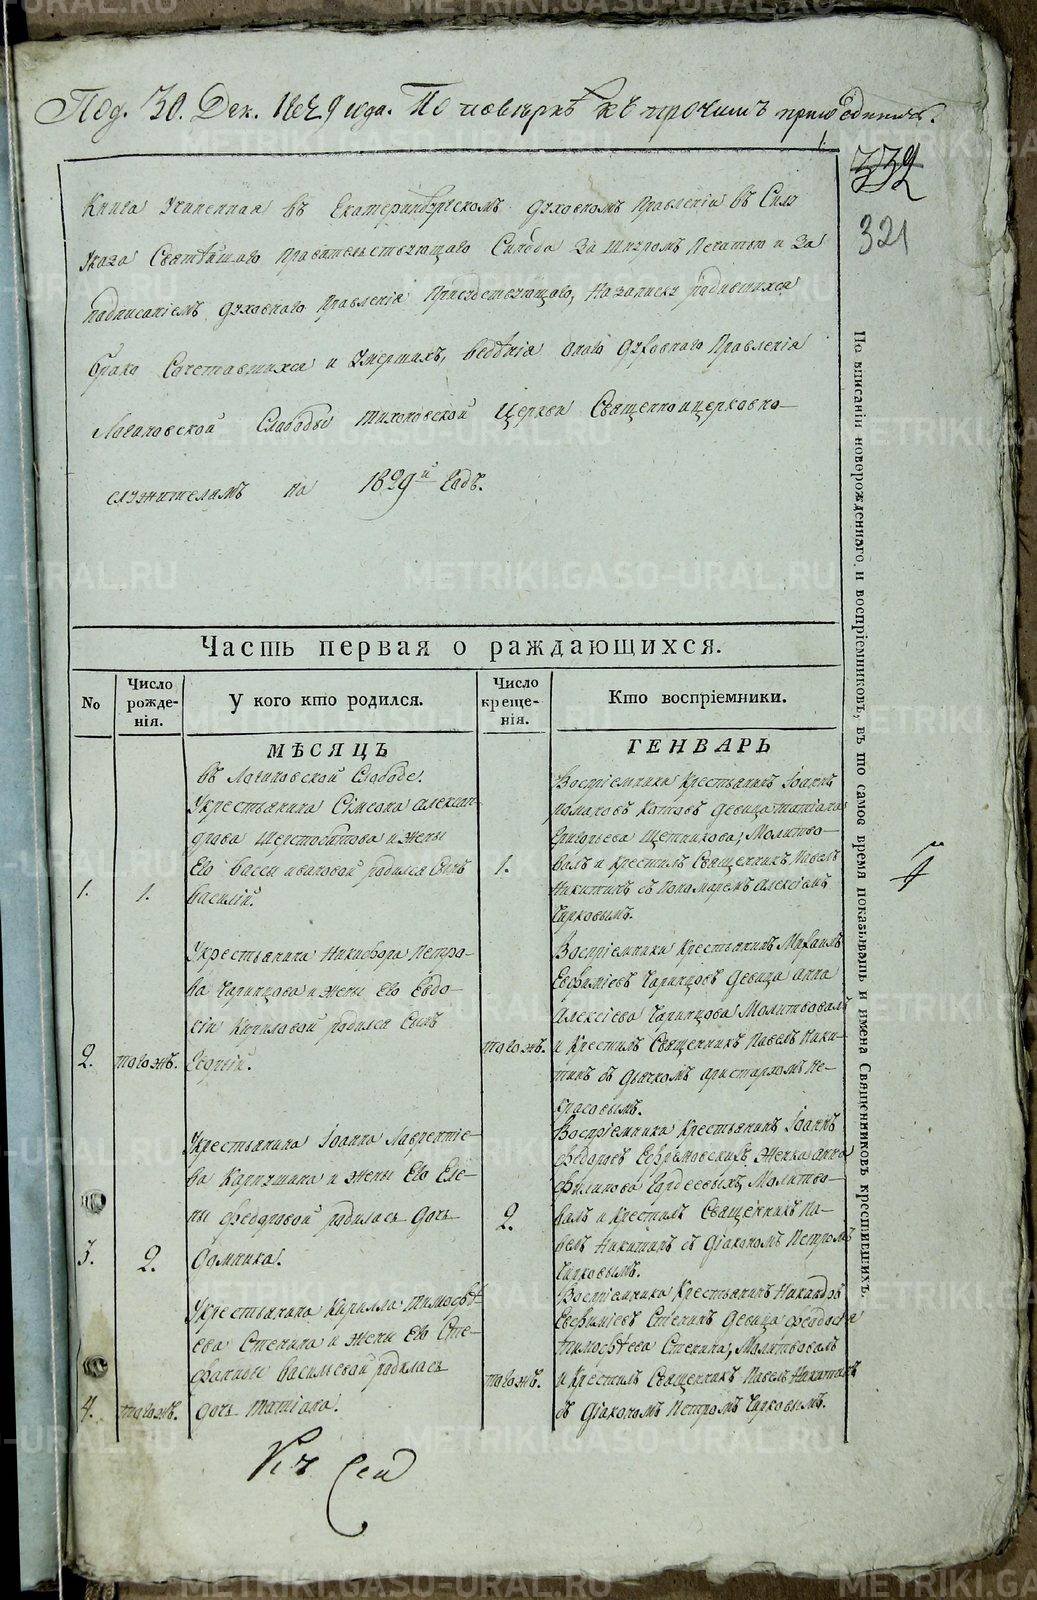 Под. 30. Дек. 1829 года. По поверке къ прочимъ приобщить.
332
321
Книга Учиненная въ Екатеринбургскомъ Духовномъ Правленіи въ Силу
Указа Святѣйшаго Правительствующаго Синода За шнуромъ Печатью и За
подписаніемъ Духовнаго Правленія Присудствующаго, На записку родившихся
брако Сочетавшихся и Умершихъ, веденія оного Духовнаго Правленія
Логиновской Слободы Тихоновской Церкви Священноцерковно-
служителямъ на 1829й Годъ.
Часть первая о раждающихся.
No
Число рожденія.
У кого кто родился.
Число крещенія.
Кто воспріемники.
МѢСЯЦЪ
ГЕНВАРЬ
въ Логиновской Слободе.
Укрестьянина Сімеона Алексан-
дрова Шерстобитова и жены
Его Вассы ивановой родился Сынъ
1.
1.
Василий.
1.
Воспріемники Крестьянинъ Іоаннъ
девица татіана
Григорьева Щетникова, Молитво-
валъ и Крестилъ Священникъ Павелъ
Никитинъ съ Пономаремъ Алексіемъ
Чирковымъ.
Укрестьянина Никифора Петро-
ва Чарипцова и жены Его Евдо-
кіи Кириловой родился Сынъ
2.
тогожъ.
Георгій.
тогожъ.
Воспріемники Крестьянинъ Михаилъ
Евфиміевъ Чарипцовъ девица Анна
Алексіева Чарипцова Молитвовалъ
и Крестилъ Священникъ Павелъ Ники-
тинъ съ Дьячкомъ Аристархомъ Не-
красовымъ.
Укрестьянина Іоанна Лаврентіе-
ва и жены Его Еле-
ны Федоровой родилась дочь
3.
2.
Домника.
2.
Воспріемники Крестьянинъ Іоаннъ
Федоровъ Ефремовскихъ Женка Анна
Филипова Гордеевыхъ, Молитво-
валъ и Крестилъ Священникъ Па-
велъ Никитинъ съ Діакономъ Петромъ
Чирковымъ.
Укрестьянина Кирилла Тимофѣ-
ева Степина и жены Его Сте-
фаниды Васильевой родилась
4.
тогожъ.
дочь татіана.
тогожъ.
Воспріемники Крестьянинъ Никандръ
Евфиміевъ Степинъ девица Феодосія
Тимофѣева Степина, Молитвовалъ
и Крестилъ Священникъ Павелъ Никитинъ
съ Діакономъ Петромъ Чирковымъ.
По вписаніи новорожденнаго и воспріемниковъ, въ то самое время показывать и имена Священниковъ крестившихъ.
METRIKI.GASO-URAL.RU